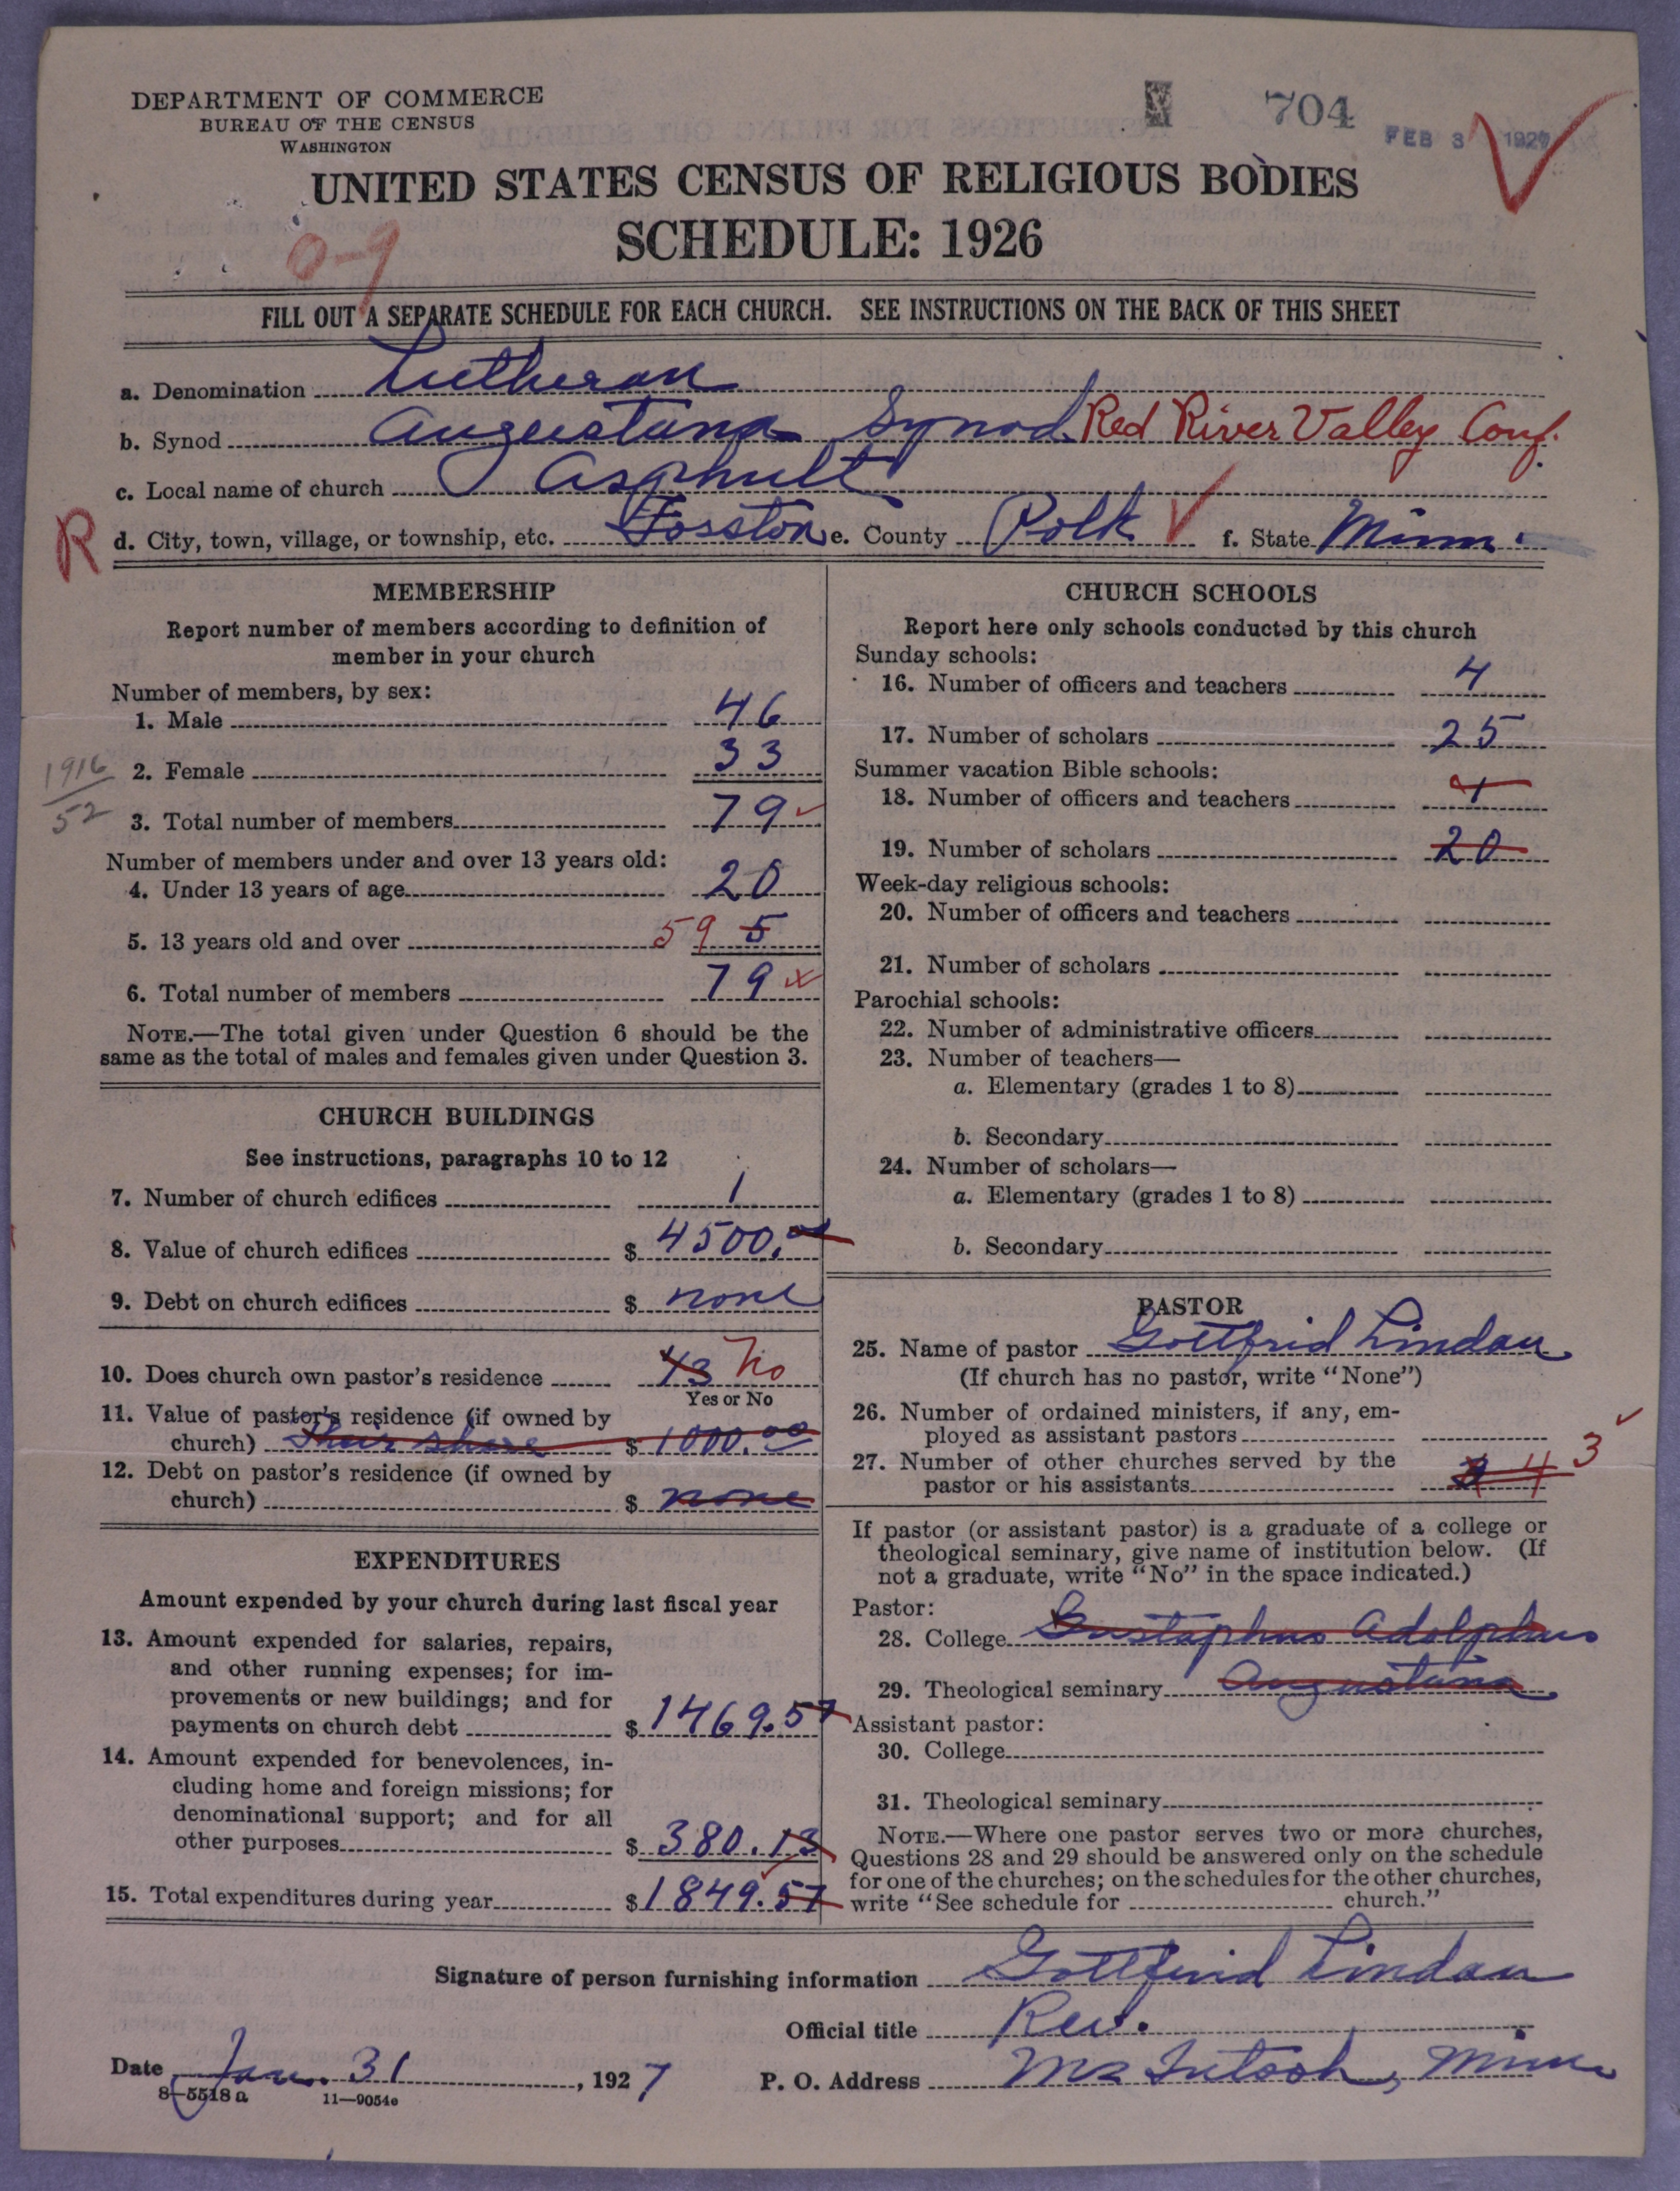 DEPARTMENT OF COMMERCE
BUREAU OF THE CENSUS
WASHINGTON
704
FEB 3 1927
UNITED STATES CENSUS OF RELIGIOUS BODIES
SCHEDULE: 1926
0-9
FILL OUT A SEPARATE SCHEDULE FOR EACH CHURCH. SEE INSTRUCTIONS ON THE BACK OF THIS SHEET
a. Denomination Lutheran
b. Synod Augustana Synod Red River Valley Conf.
c. Local name of church Asphult
R d. City, town, village, or township, etc. Fosston e. County Polk f. State Minn.
MEMBERSHIP
Report number of members according to definition of
member in your church
Number of members, by sex:
1. Male 46
2. Female 33
1916
52
3. Total number of members 79
Number of members under and over 13 years old:
4. Under 13 years of age 20
5. 13 years old and over 59 5
6. Total number of members 79
NOTE.—The total given under Question 6 should be the
same as the total of males and females given under Question 3.
CHURCH BUILDINGS
See instructions, paragraphs 10 to 12
7. Number of church edifices 1
8. Value of church edifices $ 4500.00
9. Debt on church edifices $ none
10. Does church own pastor's residence No
Yes or No
11. Value of pastor's residence (if owned by
church) Their share $ 1000.00
12. Debt on pastor's residence (if owned by
church) $ none
EXPENDITURES
Amount expended by your church during last fiscal year
13. Amount expended for salaries, repairs,
and other running expenses; for im-
provements or new buildings; and for
payments on church debt $ 1469.57
14. Amount expended for benevolences, in-
cluding home and foreign missions; for
denominational support; and for all
other purposes $ 380.13
15. Total expenditures during year $ 1849.57
CHURCH SCHOOLS
Report here only schools conducted by this church
Sunday schools:
16. Number of officers and teachers 4
17. Number of scholars 25
Summer vacation Bible schools:
18. Number of officers and teachers 1
19. Number of scholars 20
Week-day religious schools:
20. Number of officers and teachers
21. Number of scholars
Parochial schools:
22. Number of administrative officers
23. Number of teachers—
a. Elementary (grades 1 to 8)
b. Secondary
24. Number of scholars—
a. Elementary (grades 1 to 8)
b. Secondary
PASTOR
25. Name of pastor Gottfrid Lindau
(If church has no pastor, write "None")
26. Number of ordained ministers, if any, em-
ployed as assistant pastors
27. Number of other churches served by the
pastor or his assistants 4 3
If pastor (or assistant pastor) is a graduate of a college or
theological seminary, give name of institution below. (If
not a graduate, write "No" in the space indicated.)
Pastor:
28. College Gustaphus Adolphus
29. Theological seminary Augustana
Assistant pastor:
30. College
31. Theological seminary
NOTE.—Where one pastor serves two or more churches,
Questions 28 and 29 should be answered only on the schedule
for one of the churches; on the schedules for the other churches,
write "See schedule for church."
Signature of person furnishing information Gottfrid Lindau
Official title Rev.
Date Jan. 31, 1927 P. O. Address McIntosh, Minn
8-5518 a 11-9054e